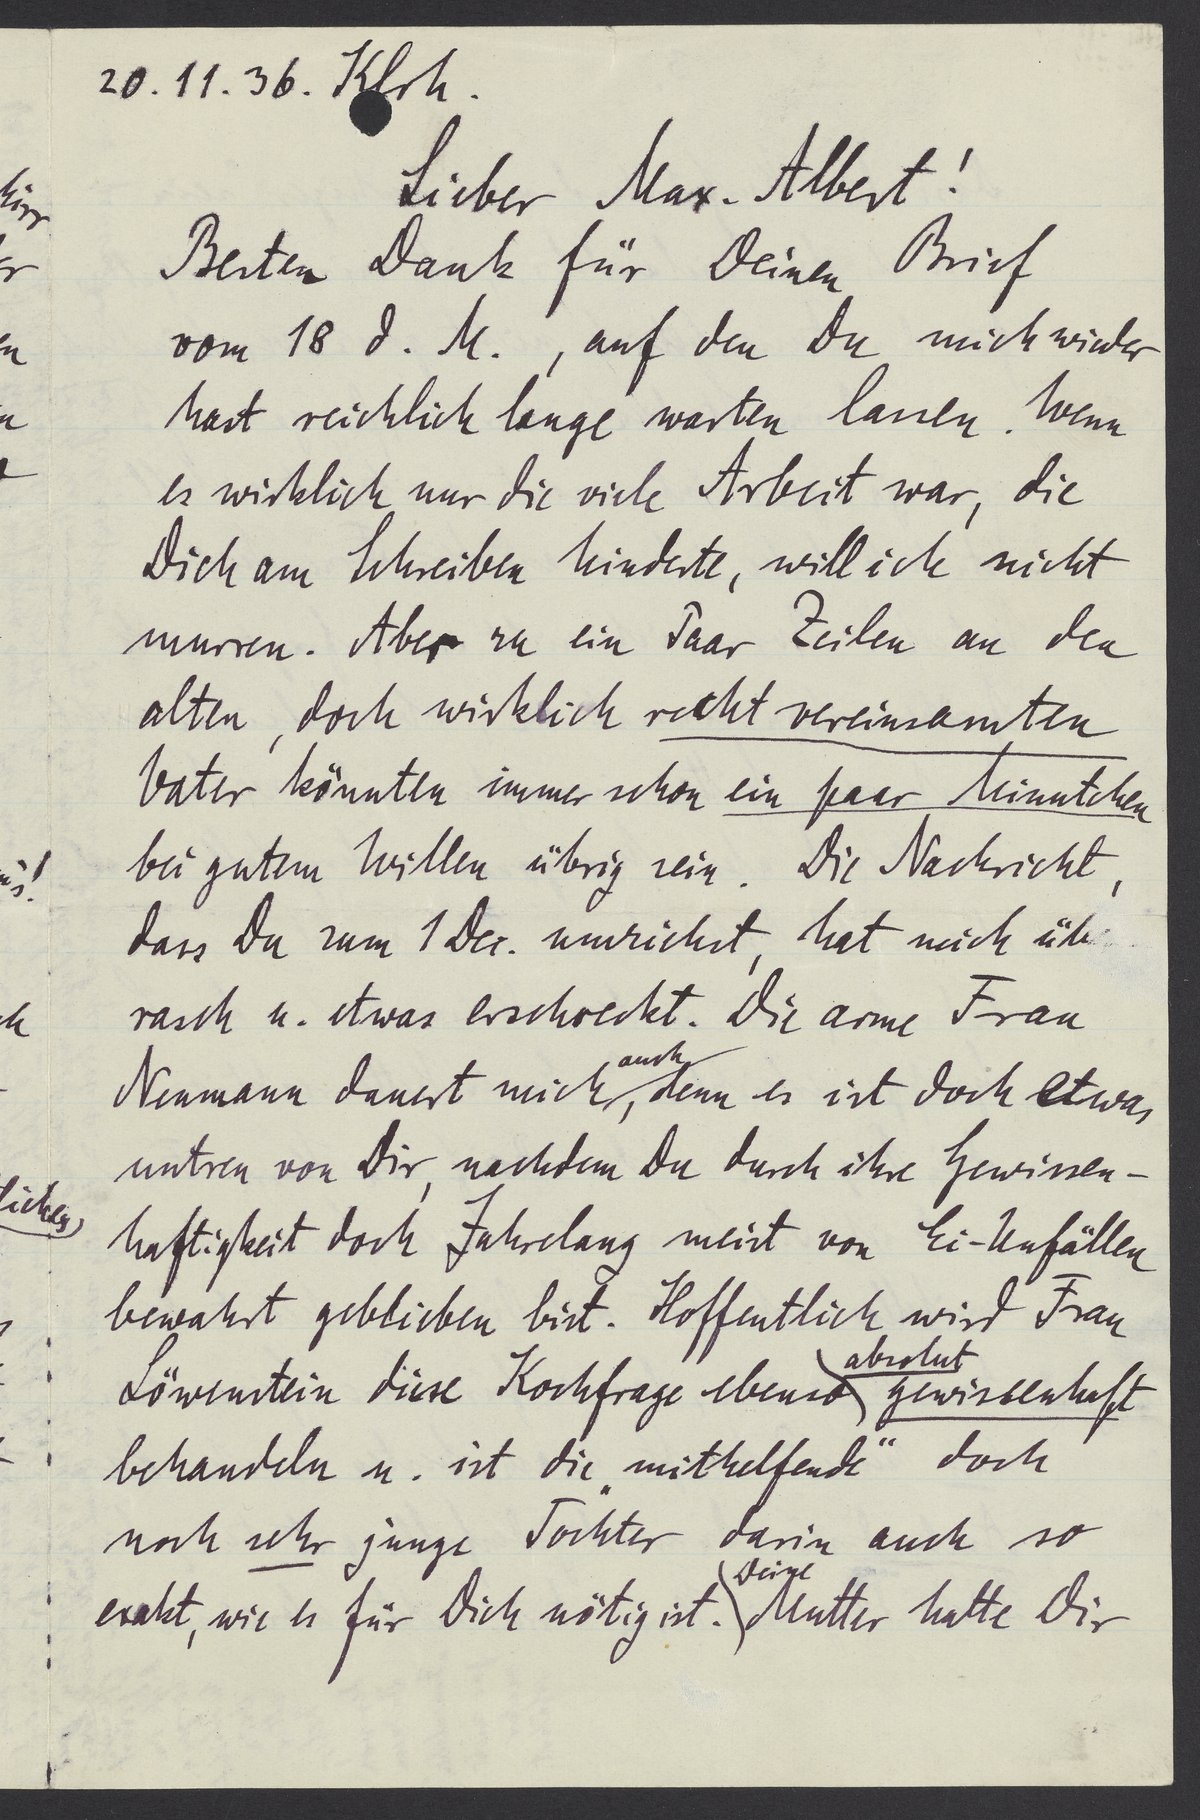 20.11.36. Klrh.
Lieber Max-Albert!
Besten Dank für Deinen Brief
vom 18 d. M., auf den Du mich wieder
hast reichlich lange warten lassen. Wenn
es wirklich nur die viele Arbeit war, die
Dich am Schreiben hinderte, will ich nicht
murren. Aber zu ein Paar Zeilen an den
alten, doch wirklich recht vereinsamten
Vater könnten immer schon ein paar Minutchen
bei gutem Willen übrig sein. Die Nachricht,
dass Du zum 1 Dec. umziehst, hat mich übe
rasch u. etwas erschreckt. Die arme Frau
Neumann dauert mich auch, denn es ist doch etwas
untreu von Dir, nachdem Du durch ihre Gewissen-
haftigkeit doch Jahrelang meist von Ei-Unfällen
bewahrt geblieben bist. Hoffentlich wird Frau
Löwenstein diese Kochfrage ebenso absolut gewissenhaft
behandeln u. ist die „mithelfende" doch
noch sehr junge Tochter darin auch so
exakt, wie es für Dich nötig ist. Deine Mutter hatte Dir